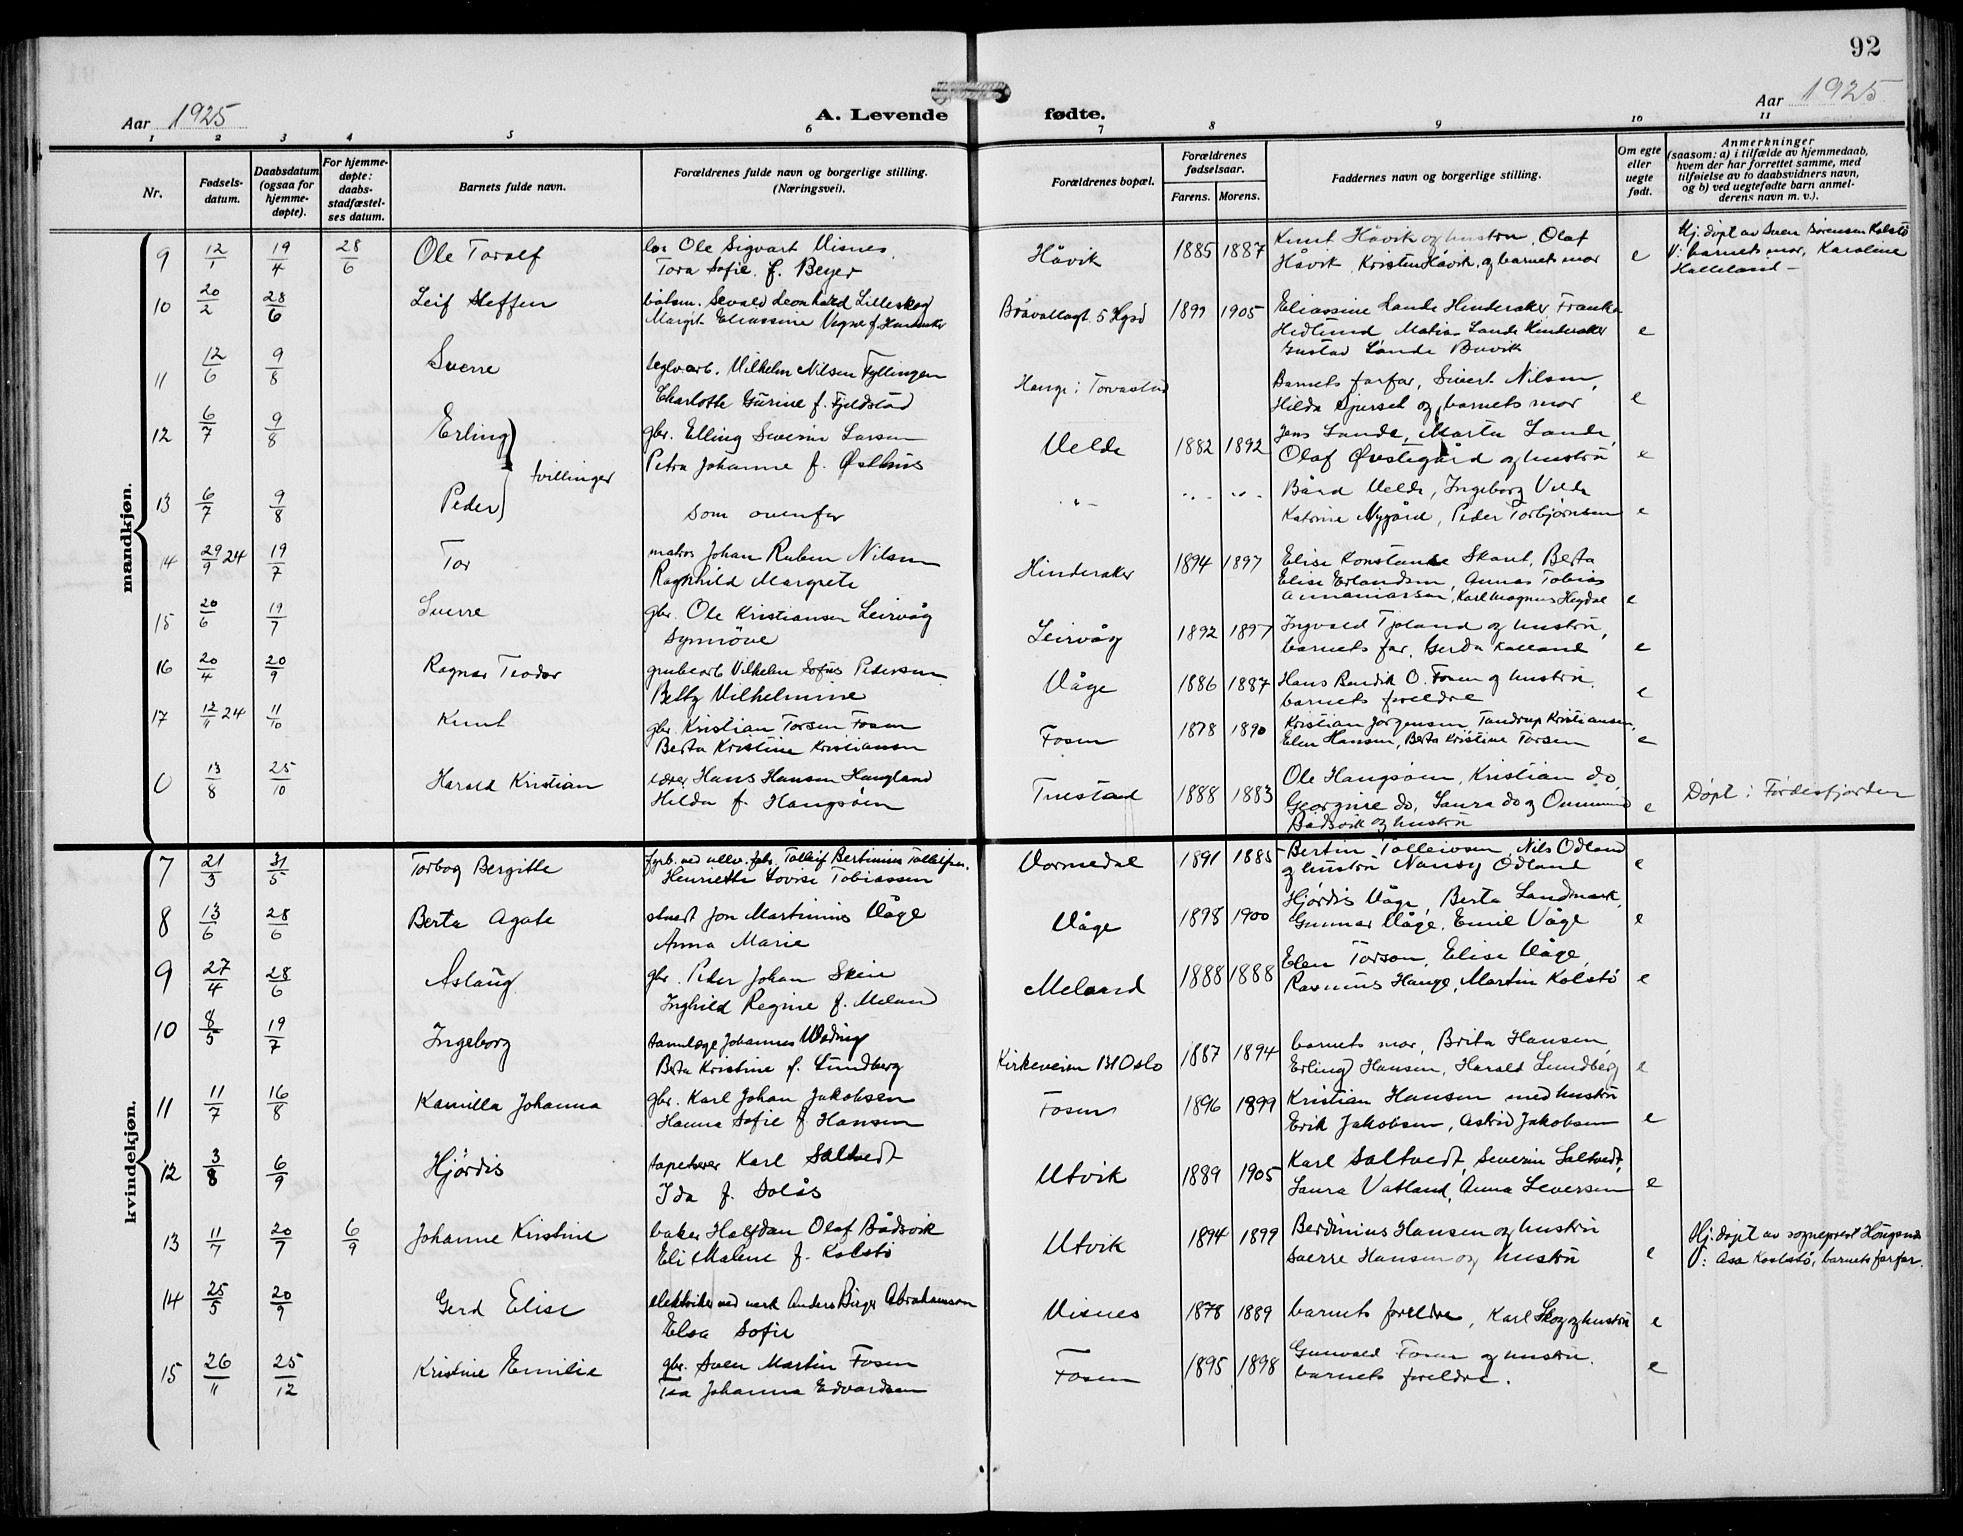 92
Aar 1925
A. Levende fødte.
Aar 1925
1 2 3 4 5 6 7 8 9 10 11
Nr.
Fødsels-
datum.
Daabsdatum
(ogsaa for
hjemme-
døpte).
For hjemme-
døpte:
daabs-
stadfæstel-
ses datum.
Barnets fulde navn.
Forældrenes fulde navn og borgerlige stilling.
(Næringsvei).
Forældrenes bopæl.
Forældrenes
fødselsaar.
Farens. Morens.
Faddernes navn og borgerlige stilling.
Om egte
eller
uegte
født.
Anmerkninger
(saasom: a) i tilfælde av hjemmedaab,
hvem der har forrettet samme, med
tilføielse av to daabsvidners navn,
og b) ved uegtefødte barn anmel-
derens navn m. v.).
mandkjøn.
9 12/1 19/4 28/6 Ole Toralf
Ole Sigvart Visnes.
Tora Sofie f. Beyer
Håvik 1885 1887
Knut Håvik og hustru, Olaf
Håvik, Kristen Håvik, og barnets mor e
Hj. døpt av Sven Sörensen Kolstö
V: barnets mor, Karoline
Halleland –
10 20/2 28/6 Leif Steffen
Sevald Leonhard Lilleskog
Margit Eliassine Vagne f. Hinderaker
5 Hgsd 1899 1905
Eliassine Lande Hinderaker, Franka
Hedlund Matias Lande Hinderaker
Gustav Lande Buvik e
11 12/6 9/8 Sverre
teglvarb. Vilhelm Nilsen Fyllingen
Charlotte Gurine f. Fjeldstad
Hauge i Torvastad
Barnets farfar, Sivert Nilsen,
Hilda Djurset og barnets mor e
12 6/7 9/8 Erling } tvillinger
gbr. Elling Severin Larsen
Petra Johanne f. Østhus
Velde 1882 1892
Jens Lande, Marta Lande,
Olaf Øvstegård og hustru e
13 6/7 9/8 Peder
som ovenfor
Bård Velde, Ingeborg Velde
Katrine Nygård, Peder Torbjörnsen e
14 29/9 24 19/7 Tor
matros Johan Ruben Nilsen
Ragnhild Margrete
Hinderaker 1894 1897
Elise Konstanse Skant, Berta
Elise Erlandsen, Annas Tobias
Annaniassen, Karl Magnus Hegdal e
15 20/6 19/7 Sverre
gbr. Ole Kristiansen Leirvåg
Synnöve
Leirvåg 1892 1897
Ingvald Tjoland og hustru,
barnets far, Gerda Kalland e
16 20/4 20/9 Ragnar Teodor
grubearb Vilhelm Sofus Pedersen
Betty Vilhelmine
Våge 1886 1887
Hans Bendik O. Fosen og hustru,
barnets foreldre e
17 12/11 24 11/10 Knut
gbr. Kristian Torsen Fosen
Berta Kristine Kristiansen
Fosen 1878 1890
Kristian Jörgensen, Tandrup Kristiansen,
Elen Hansen, Berta Kristine Torsen e
0 13/8 25/10 Harald Kristian
Hans Hansen Haugland
Hilda f. Hangsöen
Tuestad 1888 1883
Ole Hangsöen, Kristian do,
Georgine do, Laura do og Ommund
Bådsvik og hustru e
Døpt i Førdesfjorden
kvindekjøn.
7 21/3 31/5 Torbog Bergitte
fyrb. ved ullv. fabr. Tolleif Bertinius Tolleifsen.
Henriette Lovise Tobiassen
Vormedal 1891 1885
Bertin Tolleivsen, Nils Odland
og hustru Nansy Odland e
8 13/6 28/6 Berta Agate
stuert Jon Martinius Våge
Anna Marie
Våge 1898 1900
Hjördis Våge, Berta Landmark,
Gunnar Våge, Emil Våge e
9 27/4 28/6 Aslaug
gbr. Peder Johan Skeie
Inghild Regine f. Meland
Meland 1888 1888
Elen Torsen, Elise Våge,
Rasmus Hauge, Martin Kolstö e
10 8/5 19/7 Ingeborg
tannlæge Johannes Wading
Berta Kristine f. Lundberg
Kirkeveien 131 Oslo 1887 1894
barnets mor, Brita Hansen,
Erling Hansen, Harald Lundberg e
11 11/7 16/8 Kamilla Johanna
gbr. Karl Johan Jakobsen
Hanna Sofie f Hansen
Fosen 1896 1899
Kristian Hansen med hustru
Erik Jakobsen, Astrid Jakobsen e
12 3/8 6/9 Hjördis
tapetserer Karl Saltvedt
Ida f. Solås
Utvik 1889 1905
Karl Saltvedt, Severin Saltvedt,
Laura Vatland, Anna Seversen e
13 11/7 20/7 6/9 Johanne Kristine
baker Halfdan Olaf Bådsvik
Eli Malene f. Kolstö
Utvik 1894 1899
Berdinius Hansen og hustru
Sverre Hansen og hustru e
Hj. døpt av sogneprest Høgsnes
V: Asa Kolstö, barnets farfar.
14 25/5 20/9 Gerd Elise
elektriker ved verk Anders Birger Abrahamson
Elsa Sofie
Visnes 1878 1889
barnets foreldre, Karl Skog og hustru e
15 26/11 25/12 Kristine Emilie
gbr. Sven Martin Fosen
Tea Johanna Edvardsen
Fosen 1895 1898
Gunvald Fosen og hustru.
barnets foreldre. e